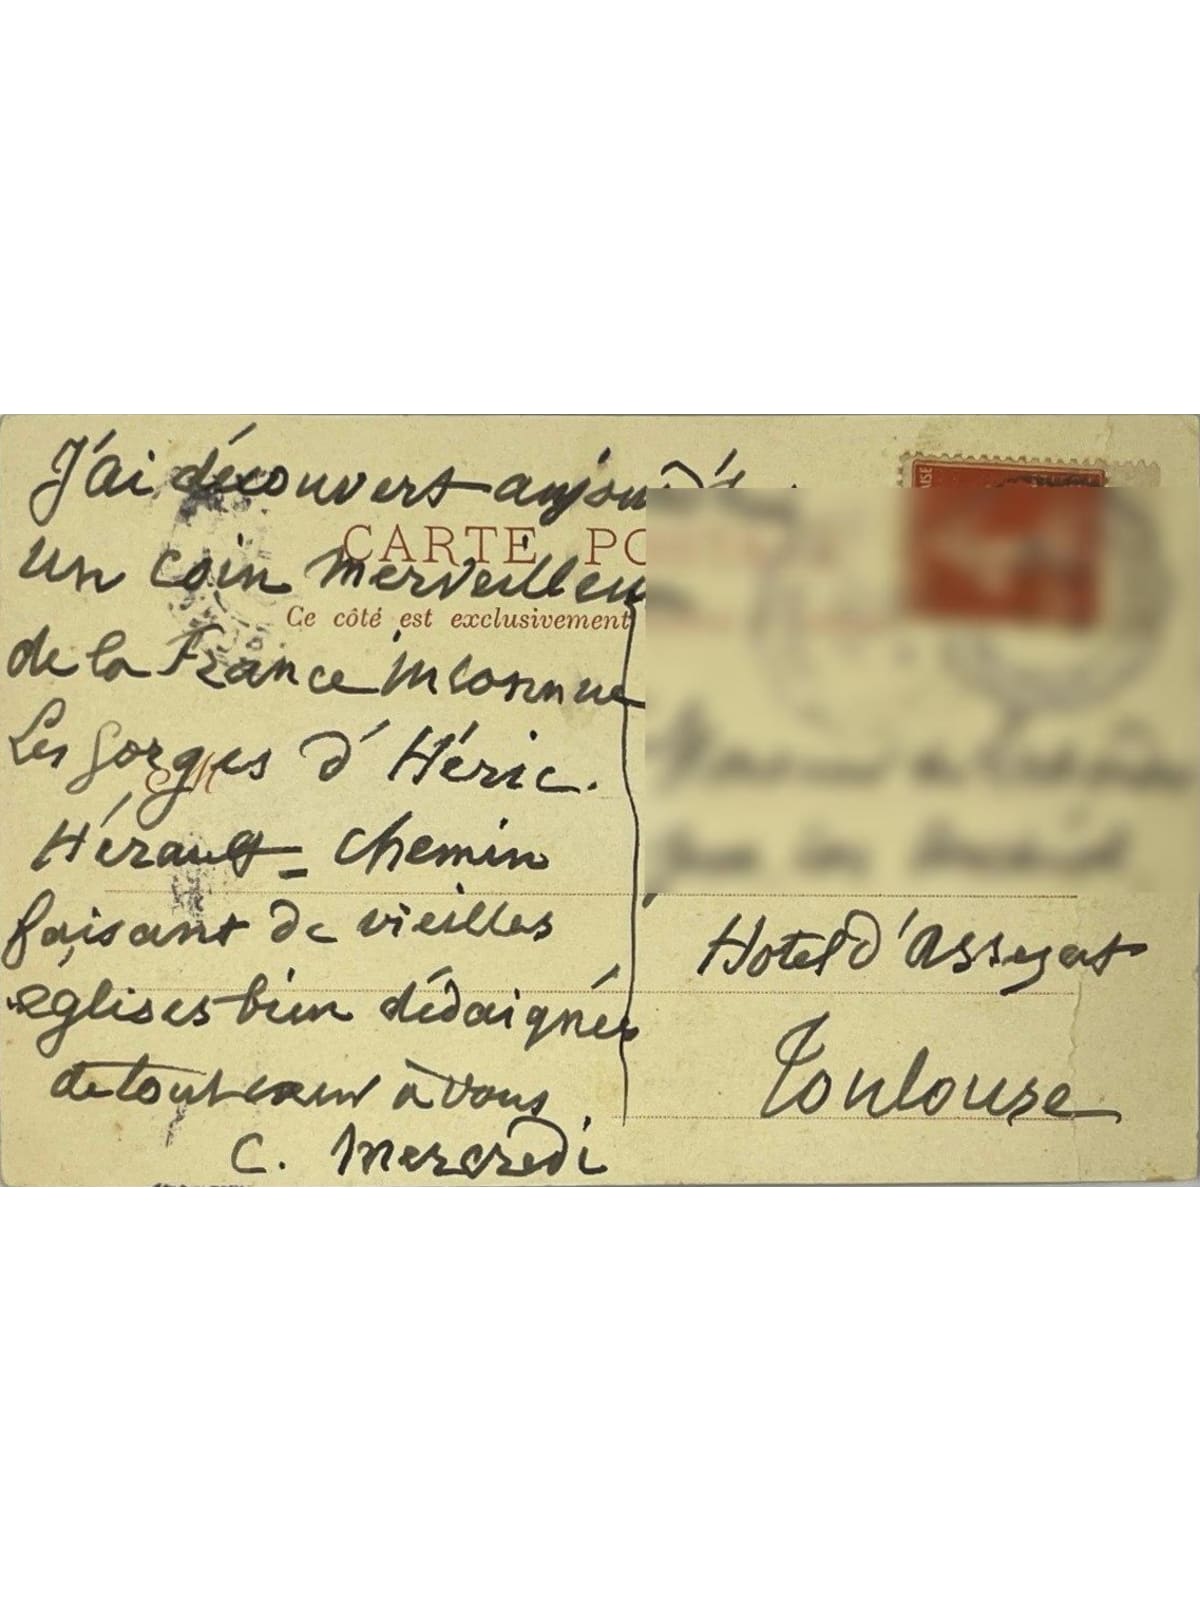 J'ai découvert aujourd'hu
un coin merveilleu
de la France inconnue
Les Gorges d'Héric.
Hérault - chemin
faisant de vieilles
églises bien dédaignées
de tout cœur à vous
C. Mercredi
CARTE PO
Ce côté est exclusivement
Hotel d'Assezat
Toulouse